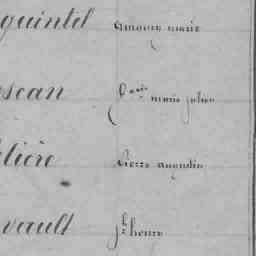 quintel amaury marie
scan f.ois marie julien
lière Pierre augustin
vault j.h henry